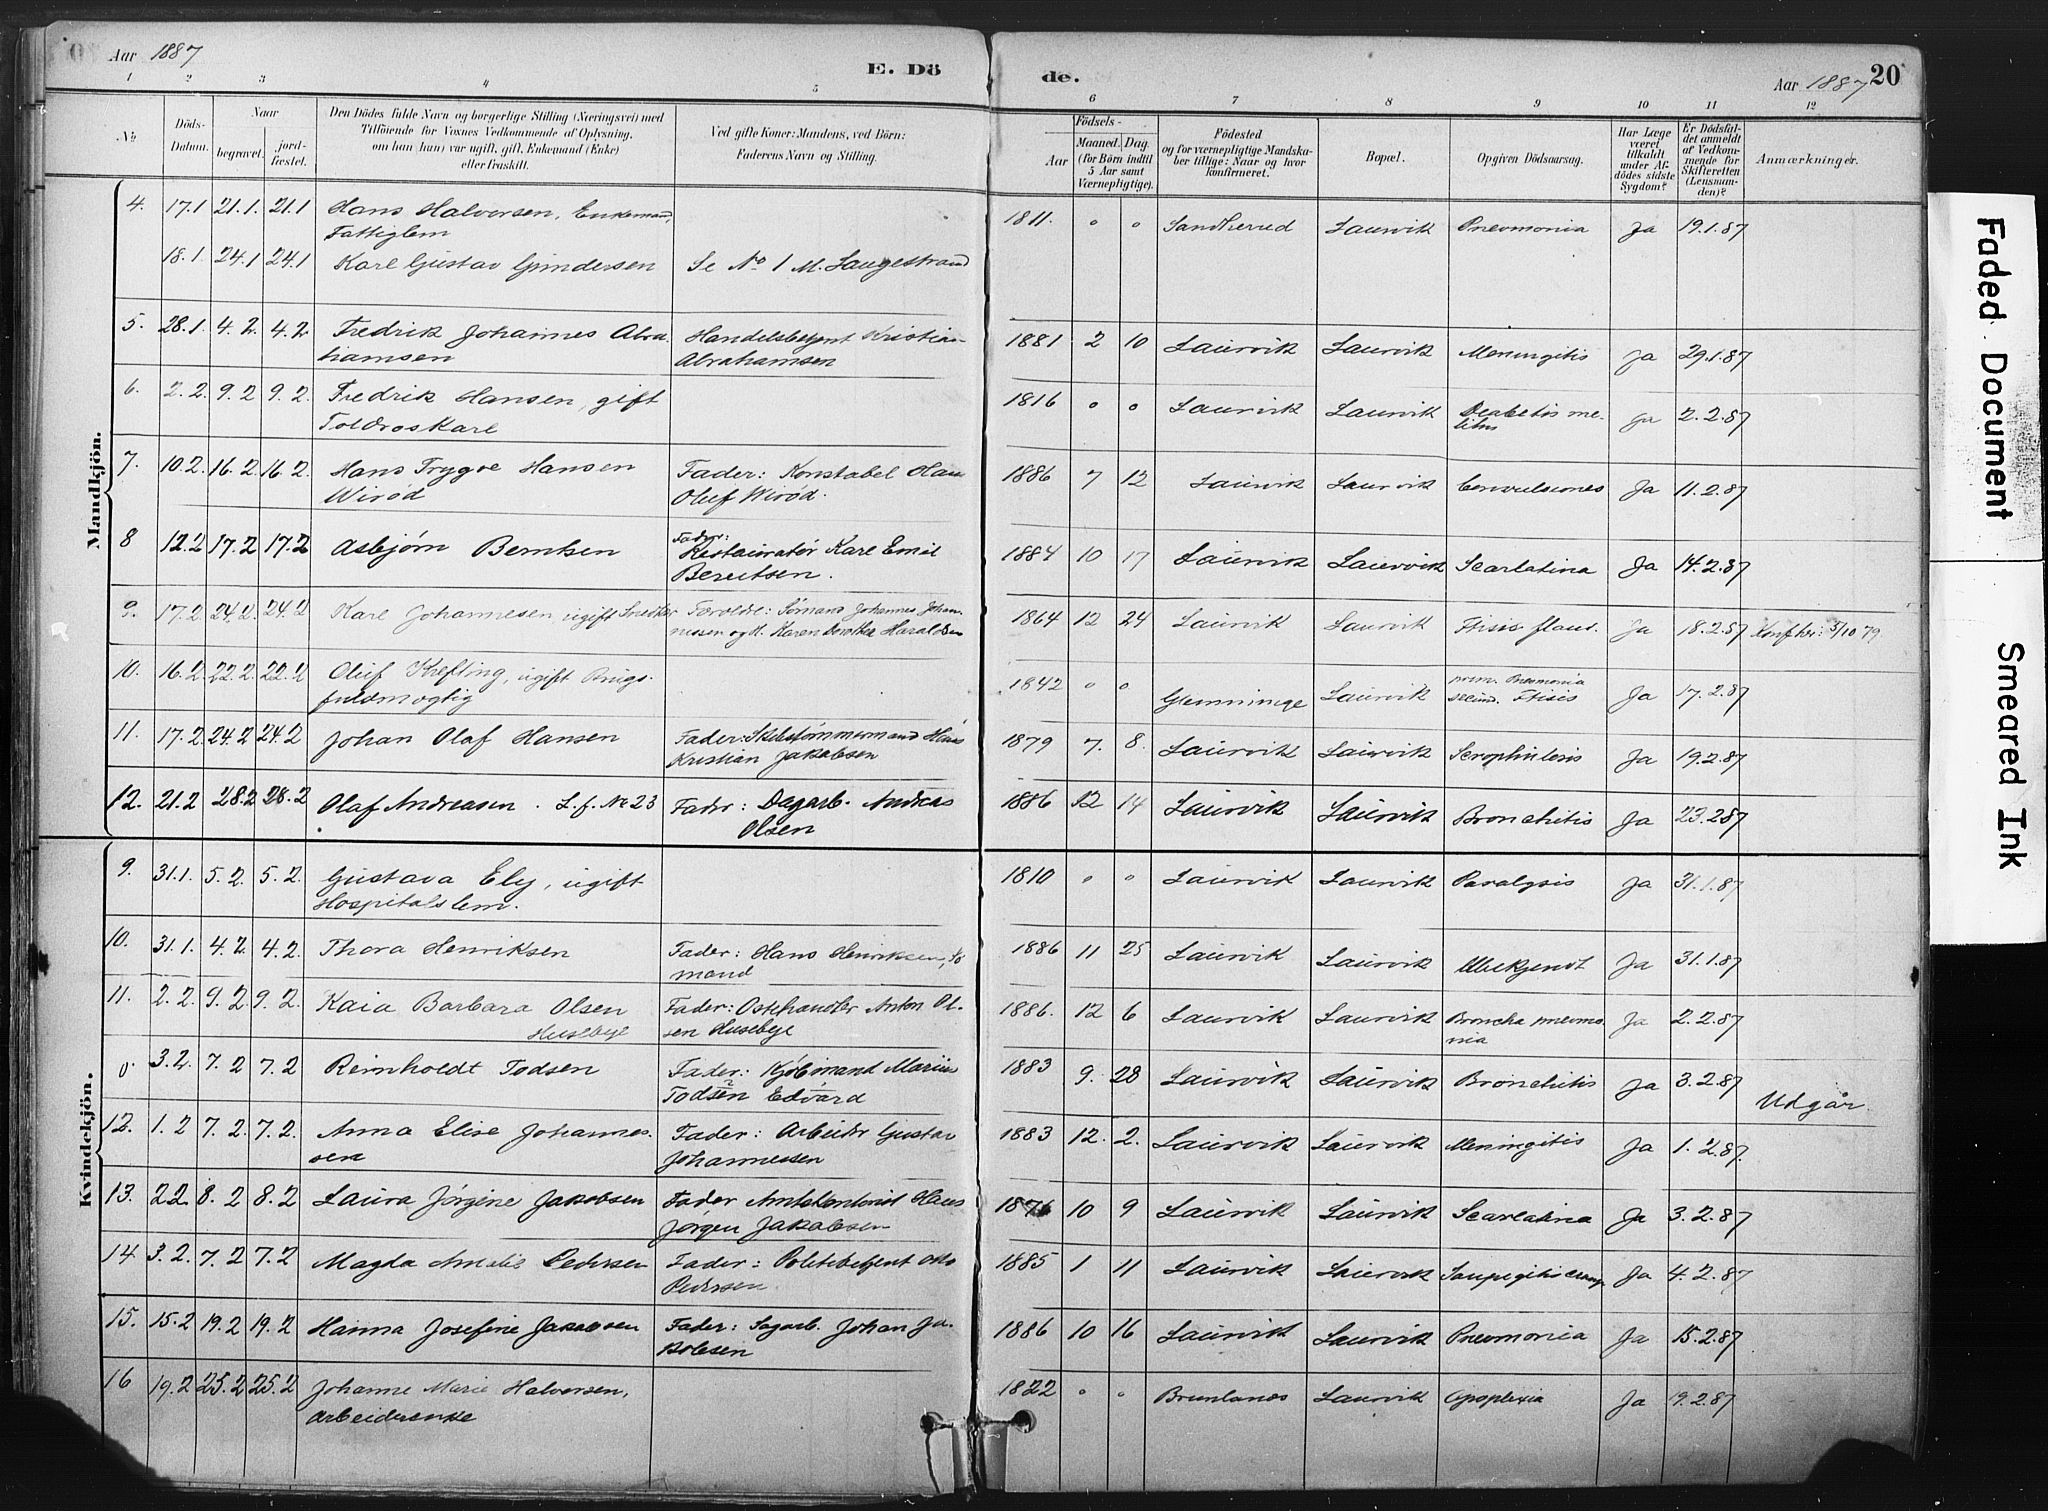 Aar 1887
E. Dö
de.
Aar 1887
20
1 2 3 4 5 6 7 8 9 10 11 12
No.
Döds-Datum.
Naar
begravet.
jord-fæstet.
Den Dödes fulde Navn og borgerlige Stilling (Næringsvei) med
Tilföiende for Voxnes Vedkommende af Oplysning,
om han (hun) var ugift, gift, Enkemand (Enke)
eller fraskilt.
Ved gifte Koner: Mandens, ved Börn:
Faderens Navn og Stilling.
Födsels-
Aar
Maaned. Dag.
(for Börn indtil
5 Aar samt
Værnepligtige).
Födested
og for værnepligtige Mandska-
ber tillige: Naar og hvor
konfirmeret.
Bopæl.
Opgiven Dödsaarsag.
Har Læge
været
tilkaldt
under Af-
dödes sidste
Sygdom?
Er Dödsfal-
det anmeldt
af Vedkom-
mende for
Skifteretten
(Lensman-
den)?
Anmærkninger.
Mandkjön.
4. 17.1 21.1. 21.1 Hans Halversen, Enkemand, 1811. " " Sandherred Laurvik Pneumonia Ja 19.1.87
Fattiglem
18.1. 24.1 24.1 Karl Gustav Gundersen Se No 1 M. Langestrand
5. 28.1. 4.2. 4.2. Fredrik Johannes Abra- Handelsbetjent Kristian 1881 2 10 Laurvik Laurvik Meningitis Ja 29.1.87
hamsen Abrahamsen
6. 2.2. 9.2 9.2. Fredrik Hansen, gift 1816 " " Laurvik Laurvik Diabetis me- Ja 2.2.87
Toldroskarl litus
7. 10.2. 16.2. 16.2. Hans Trygve Hansen Fader: Konstabel Hans 1886 7 12 Laurvik Laurvik Convulsiones Ja 11.2.87
Wirød Oluf Wirød.
8 12.2 17.2 17.2 Asbjørn Berntsen Fader: Restauratør Karl Emil 1884 10 17 Laurvik Laurvik Scarlatina Ja 14.2.87
Berntsen.
9. 17.2 24.2. 24.2 Karl Johannesen ugift Snedker Foreldre: Sømand Johannes Johan- 1864 12 24 Laurvik Laurvik Ftisis Ja 18.2.87 Konf. 5/10 79
nessen og H. Karen Dorothea Haraldsen
10. 16.2 22.2. 22.2 Oluf Krefting, ugift Brugs- 1842 " " Glemminge Laurvik prim. Pneumonia Ja 17.2.87
fuldmægtig secund. Ftisis
11. 17.2. 24.2 24.2 Johan Olaf Hansen Fader: Skibstømmermand Hans 1879 7. 8. Laurvik Laurvik Scrophulosis Ja 19.2.87
Kristian Jakobsen
12. 21.2 28.2 28.2 Olaf Andreasen. L.f. No 23 Fader: Dagarb. Andreas 1886 12 14 Laurvik Laurvik Bronchitis Ja 23.2.87
Olsen
Kvindekjön.
9. 31.1. 5.2. 5.2. Gustava Ely, ugift 1810 " " Laurvik Laurvik Paralysis Ja 31.1.87
Hospitalslem.
10. 31.1. 4.2. 4.2. Thora Henriksen Fader: Hans Henriksen, Sø 1886 11 25 Laurvik Laurvik Ubekjendt Ja 31.1.87
mand
11. 2.2. 9.2 9.2. Kaia Barbara Olsen Fader: Ostehandler Anton Ol- 1886. 12 6 Laurvik Laurvik Broncha pneumo- Ja 2.2.87
Husebye sen Husebye nia
0. 3.2. 7.2 7.2 Reinholdt Todsen Fader: Kjøbmand Marius 1883 9. 28 Laurvik Laurvik Bronchitis Ja 3.2.87 Udgår.
Todsen Edvard
12. 1.2 7.2. 7.2. Anna Elise Johannes- Fader: Arbeider Gustav 1883 12. 2. Laurvik Laurvik Meningitis Ja 1.2.87.
sen Johannessen
13. 2.2 8.2 8.2 Laura Jørgine Jakobsen Fader Amtskontorist Hans 1876 10 9 Laurvik Laurvik Scarlatina Ja 3.2.87
Jørgen Jakobsen
14 3.2. 7.2 7.2 Magda Amalie Pedersen Fader: Politibetjent Otto 1885 1 11 Laurvik Laurvik Ja 4.2.87
Pedersen
15. 15.2 19.2 19.2 Hanna Josefine Jakobsen Fader: Sagarb. Johan Ja- 1886 10 16 Laurvik Laurvik Pneumonia Ja 15.2.87
kobsen
16 19.2 25.2 25.2 Johanne Marie Halversen, 1822 " " Brunlanes Laurvik Apoplexia Ja 19.2.87
Arbeiderenke
Faded Document
Smeared Ink